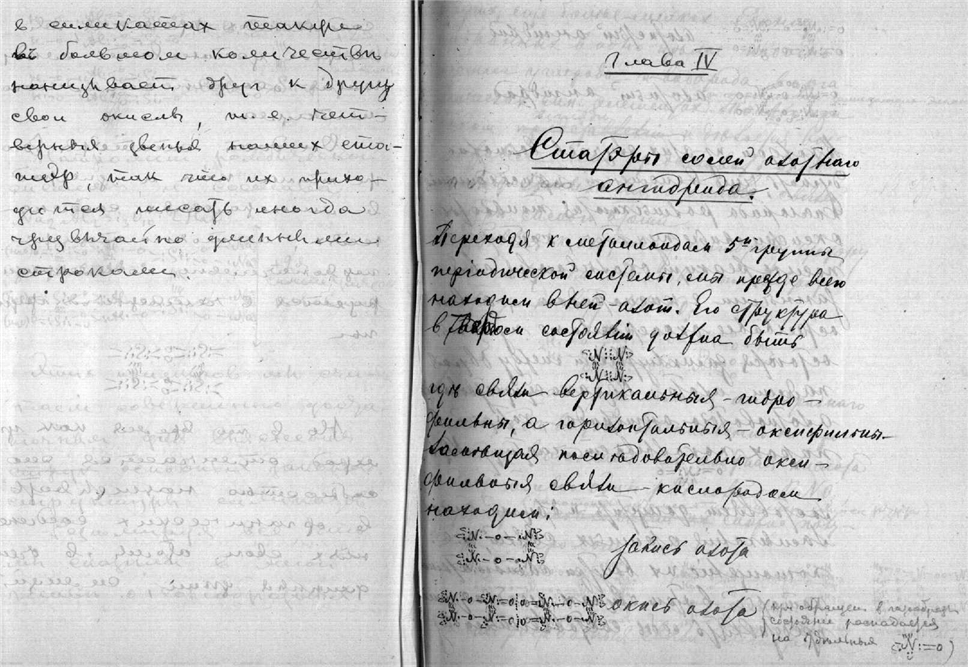 в силикатах такую
въ большом количествѣ
нанизывает друг к другу
свои окислы, т. е. чет-
верныя звенья наших эта-
жер, так что их прихо-
дится писать иногда
чрезвычайно длинными
строками.
Глава IV
Стафры солей азотнаго
ангидрида.
Переходя к металлоидам 5й группы
періодической системы, мы прежде всего
находим в ней азот. Его структура
в твердом состояніи должна быть
:N::N:
:N::N:
гдѣ связи вертикальныя гидро-
фильны, а горизонтальныя оксифильны.
последовательно окси-
фильныя связи кислородом
находим:
N–o–N
N–o–N
закись азота
окись азота
(при обращеніи в парообр.
состояніе распадается
на N=o)